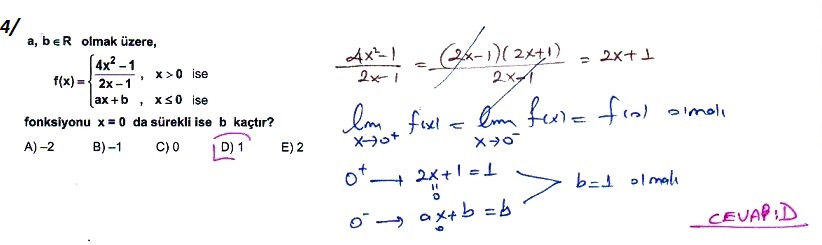 4/
a, b ∈ R olmak üzere,
f(x) = { (4x² – 1)/(2x – 1) , x > 0 ise
ax + b , x ≤ 0 ise
fonksiyonu x = 0 da sürekli ise b kaçtır?
A) –2 B) –1 C) 0 D) 1 E) 2
(4x²-1)/(2x-1) = (2x-1)(2x+1)/(2x-1) = 2x+1
lim x→0⁺ f(x) = lim x→0⁻ f(x) = f(0) olmalı
0⁺ → 2x+1 = 1
0
b=1 olmalı
0⁻ → ax+b = b
0
CEVAP: D